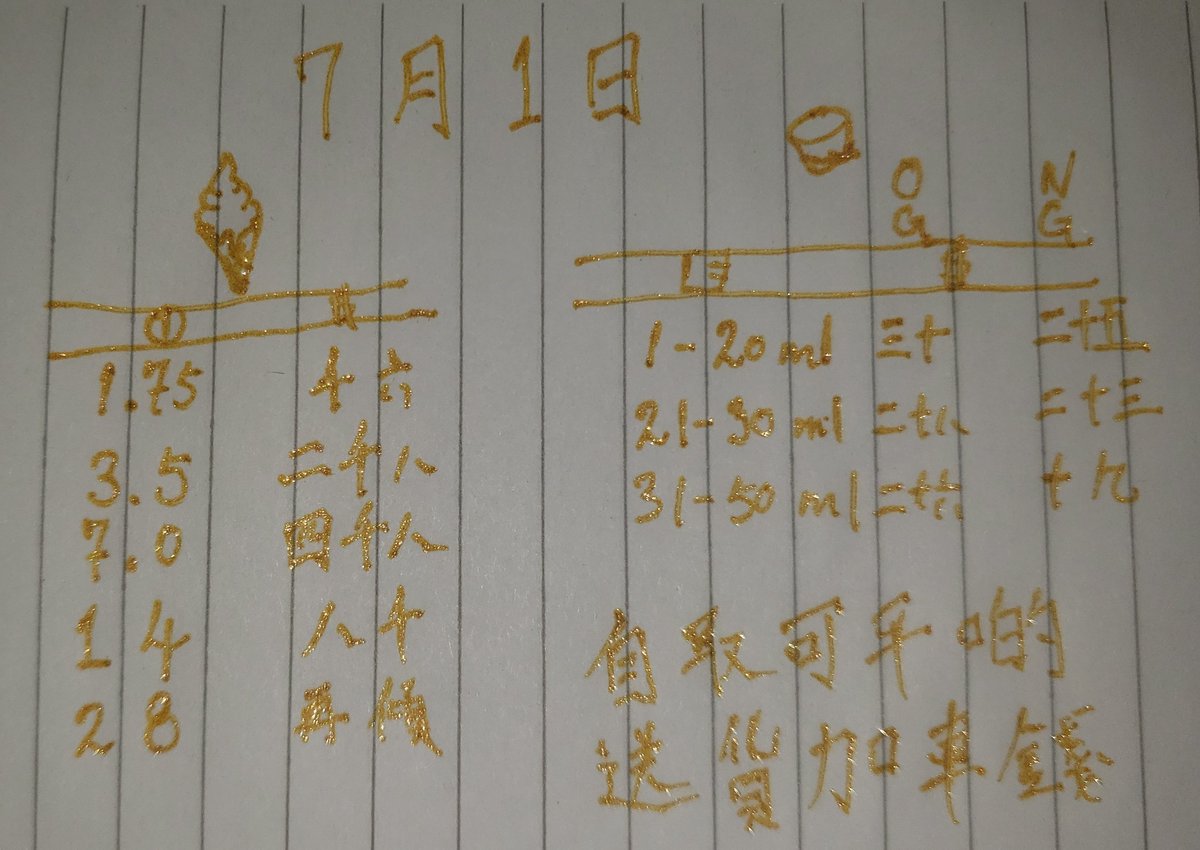 7月1日
1.75 十六
3.5 二十八
7.0 四十八
14 八十
28 再傾
OG NG
1-20ml 三十 二十五
21-30ml 二十八 二十三
31-50ml 二十六 十九
自取可平啲
送貨加車錢